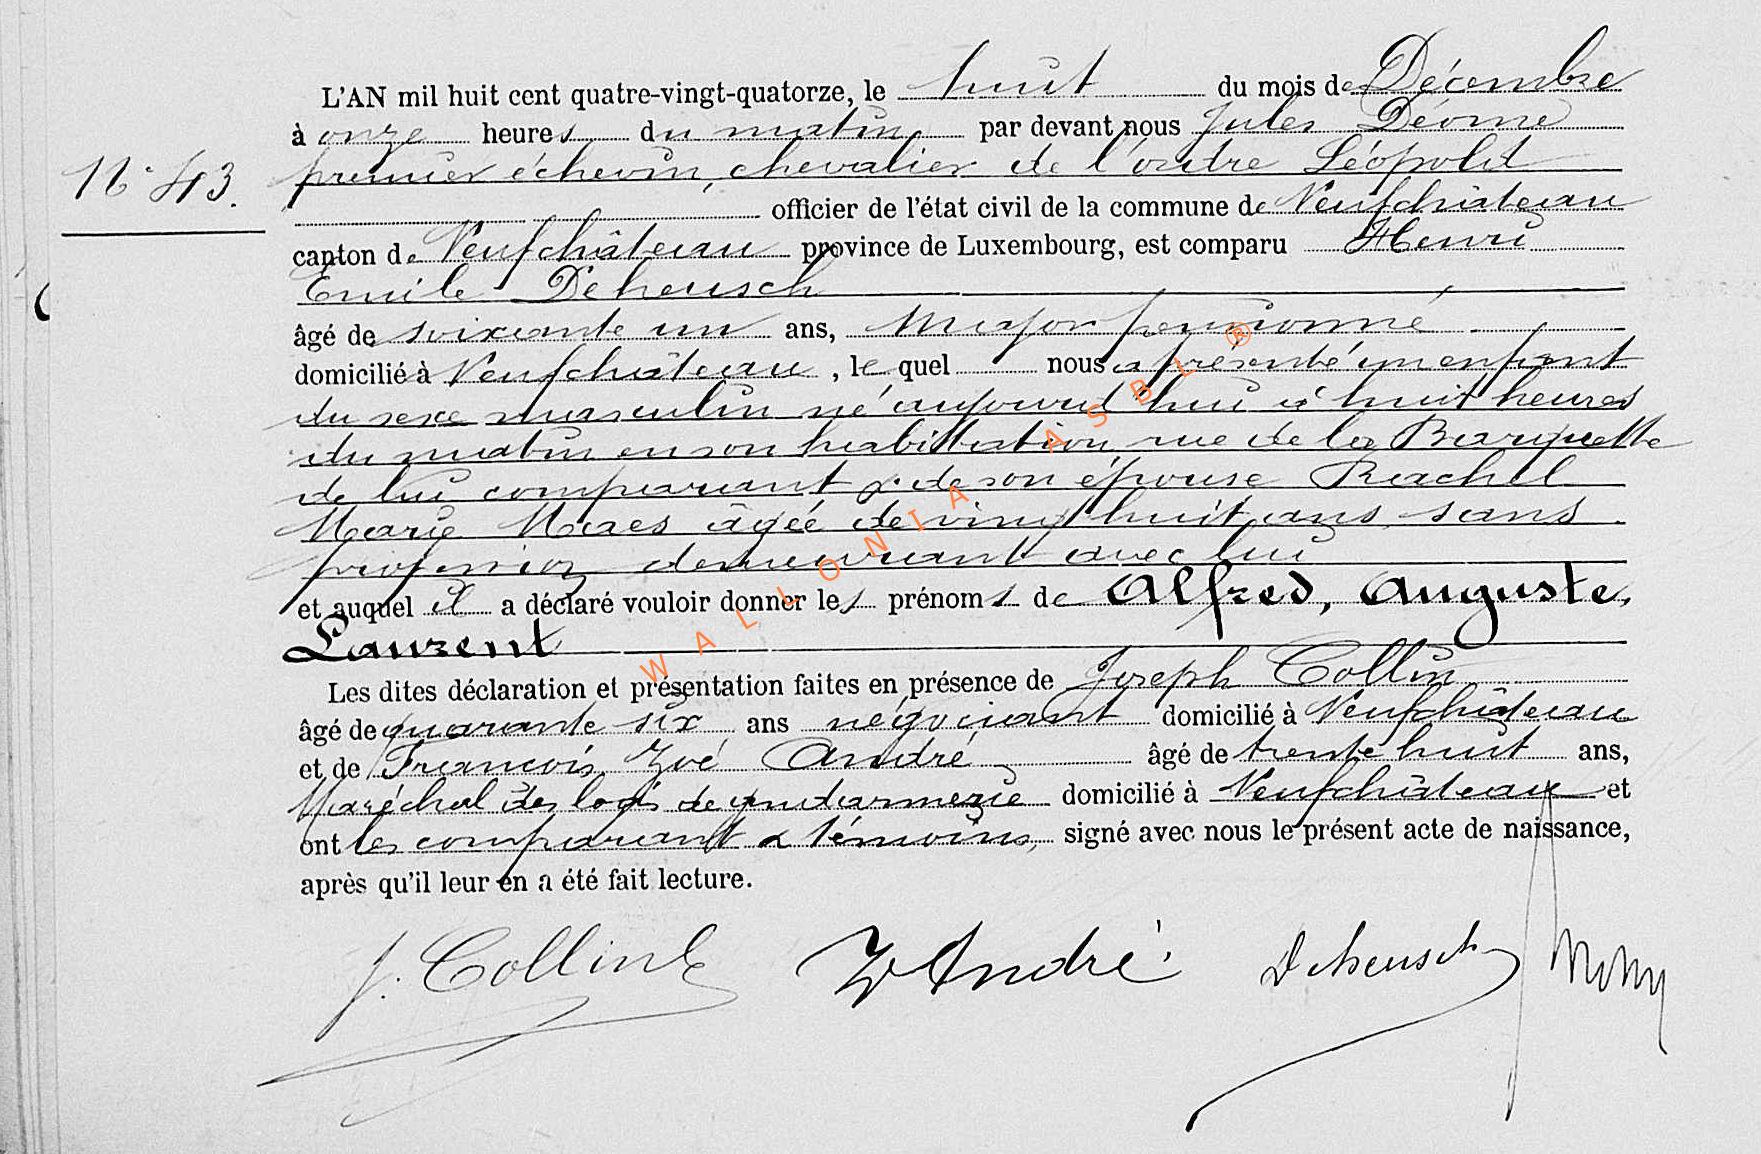 L'AN mil huit cent quatre-vingt-quatorze, le huit du mois de Décembre
à onze heures du matin, par devant nous Jules Déome
N° 43.
premier échevin, chevalier de l'ordre Léopold
officier de l'état civil de la commune de Neufchâteau
canton de Neufchâteau province de Luxembourg, est comparu Henri
Emile Deheusch
âgé de soixante un ans, Major pensionné
domicilié à Neufchâteau, lequel nous a présenté un enfant
du sexe masculin né aujourd'hui à huit heures
du matin en son habittation, rue de la Barquette
de lui comparant & de son épouse Rachel
Marie Maes âgée de vingt huit ans, sans
profession demeurant avec lui
et auquel il a déclaré vouloir donner les prénoms de Alfred, Auguste,
Laurent
Les dites déclaration et présentation faites en présence de Joseph Collin
âgé de quarante six ans négociant domicilié à Neufchâteau
et de François Zoé André âgé de trente huit ans,
Maréchal des logis de gendarmerie domicilié à Neufchâteau et
ont les comparant & témoins, signé avec nous le présent acte de naissance,
après qu'il leur en a été fait lecture.
J. Collin Z André Deheusch
WALLONIA ASBL ®